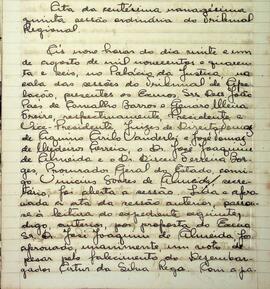 Ata da centésima nonagésima
quinta sessão ordinária do Tribunal
Regional.
Às nove horas do dia vinte e um
de agosto de mil novecentos e quaren-
ta e seis, no Palácio da Justiça, na
sala das sessões do Tribunal de Ape-
lação, presentes os Exmos. Srs. Drs. João
Paes de Carvalho Barros e Genaro
Freire, respectivamente, Presidente e
Vice Presidente, Juizes de Direito
José
de Medeiros Correia, e Dr. José Joaquim
de Almeida e o Dr. Dirceu Ferreira Bor-
ges, Procurador Geral do Estado, comi-
go, Vinicius Soares de Almeida, secre-
tário foi aberta a sessão. Lida e apro-
vada a ata da sessão anterior, passou-
se à leitura do expediente seguinte,
digo, anterior, por proposta do Exmo
Sr. Dr. José Joaquim de Almeida foi
aprovado unanimemente, um voto de
pesar pelo falecimento do Desembar-
gador Artur da Silva Rego. Com a pa-